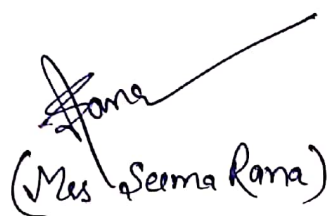 SRana
(Mrs Seema Rana)